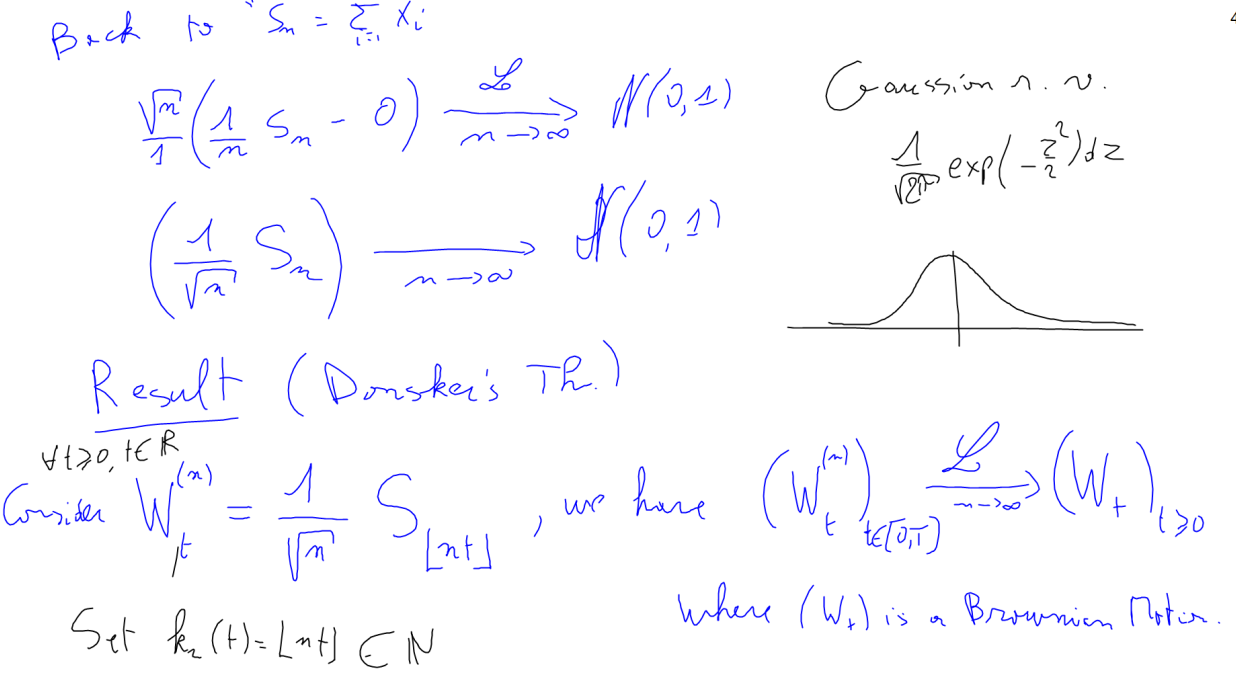 Back to S_n = Σ_{i=1} X_i
√n/1 (1/n S_n - 0) →^ℒ_{n→∞} 𝒩(0,1)
(1/√n S_n) →_{n→∞} 𝒩(0,1)
Gaussian r.v.
1/√2π exp(-z²/2)dz
Result (Donsker's Th.)
∀t⩾0, t∈ℝ
Consider W_t^{(n)} = 1/√n S_{⌊nt⌋}, we have (W_t^{(n)})_{t∈[0,T]} →^ℒ_{n→∞} (W_t)_{t⩾0}
where (W_t) is a Brownian Motion.
Set k_n(t) = ⌊nt⌋ ∈ ℕ
4